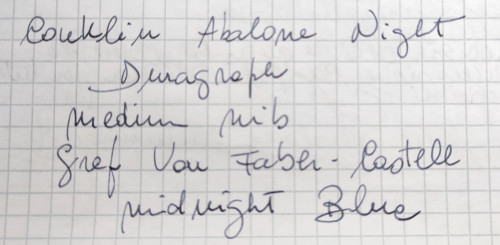 Conklin Abalone Night
Duragraph
medium nib
Graf Von Faber-Castell
midnight Blue